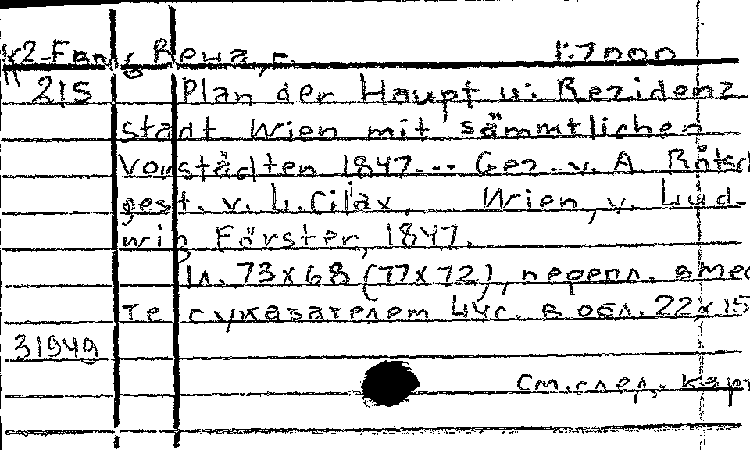 К2-Ганд Вена, г. 1:7000
215 Plan der Haupt u: Rezidenz
stadt Wien mit sämmtlichen
Vorstädten 1847... Gez. v. A Rötsch
gest. v. L. Cilax, Wien, v. Lud-
wig Förster, 1847.
1л. 73x68 (77x72), перепл. вмес
те с указателем 44с. в обл. 22x15
31949
См. след. кар